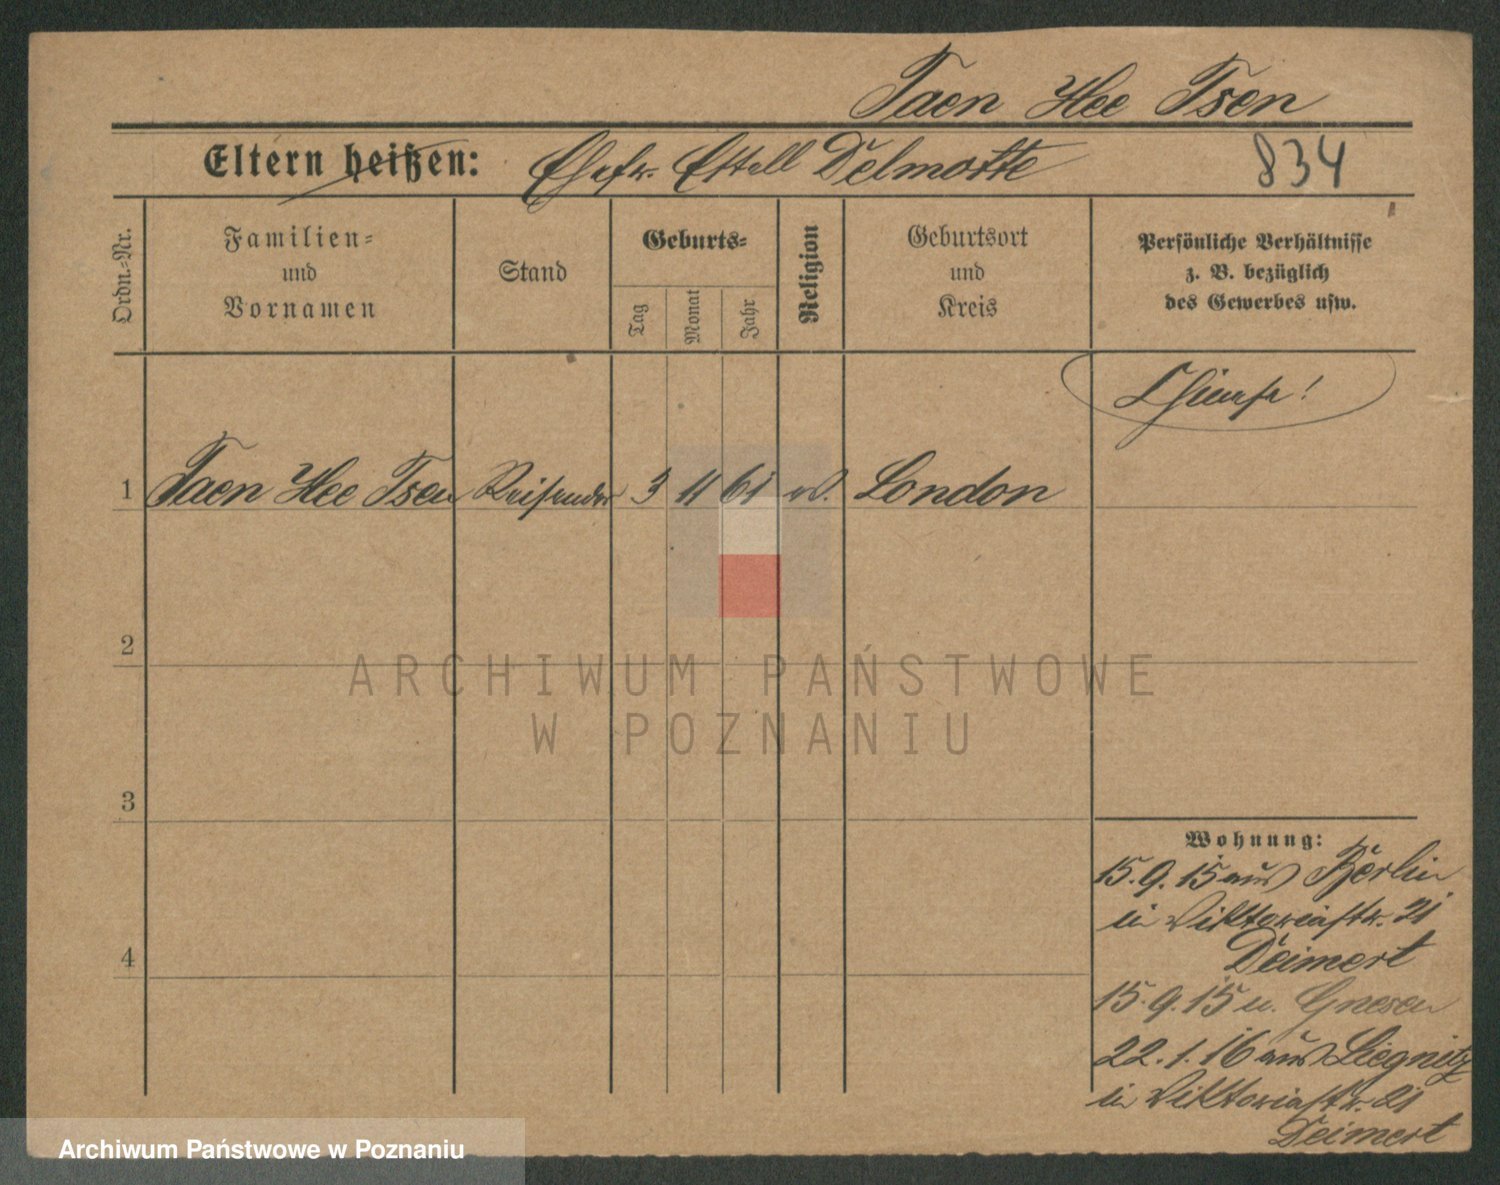 Taen Hee Tsen
Eltern heißen: Ehefr. Estell Delmotte 834
Ordn.-Nr.
Familien-
und
Vornamen
Stand
Geburts-
Tag
Monat
Jahr
Religion
Geburtsort
und
Kreis
Persönliche Verhältnisse
z. B. bezüglich
des Gewerbes usw.
Chinese!
1 Taen Hee Tsen Reisender 3 11 61 London
2
3
4
Wohnung:
15.9.15 aus Berlin
in Viktoriastr. 21
Deimert
15.9.15 n. Gnesen
22.1.16 aus Liegnitz
in Viktoriastr. 21
Deimert
ARCHIWUM PAŃSTWOWE
W POZNANIU
Archiwum Państwowe w Poznaniu